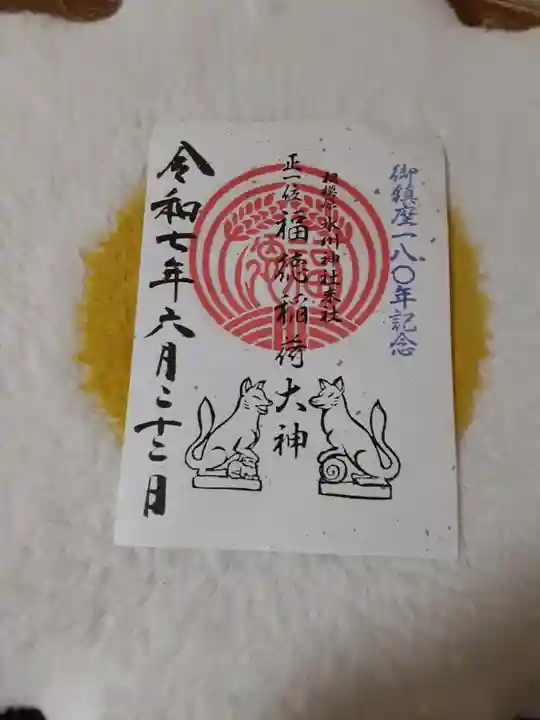 御鎮座一八〇年記念
相模原氷川神社末社
正一位福徳稲荷大神
令和七年六月二十二日